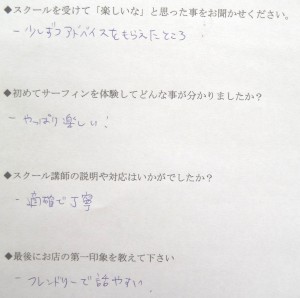 ◆スクールを受けて「楽しいな」と思った事をお聞かせください。
- 少しずつアドバイスをもらえたところ!
◆初めてサーフィンを体験してどんな事が分かりましたか?
- やっぱり楽しい!
◆スクール講師の説明や対応はいかがでしたか?
- 適確で丁寧
◆最後にお店の第一印象を教えて下さい
- フレンドリーで話やすい